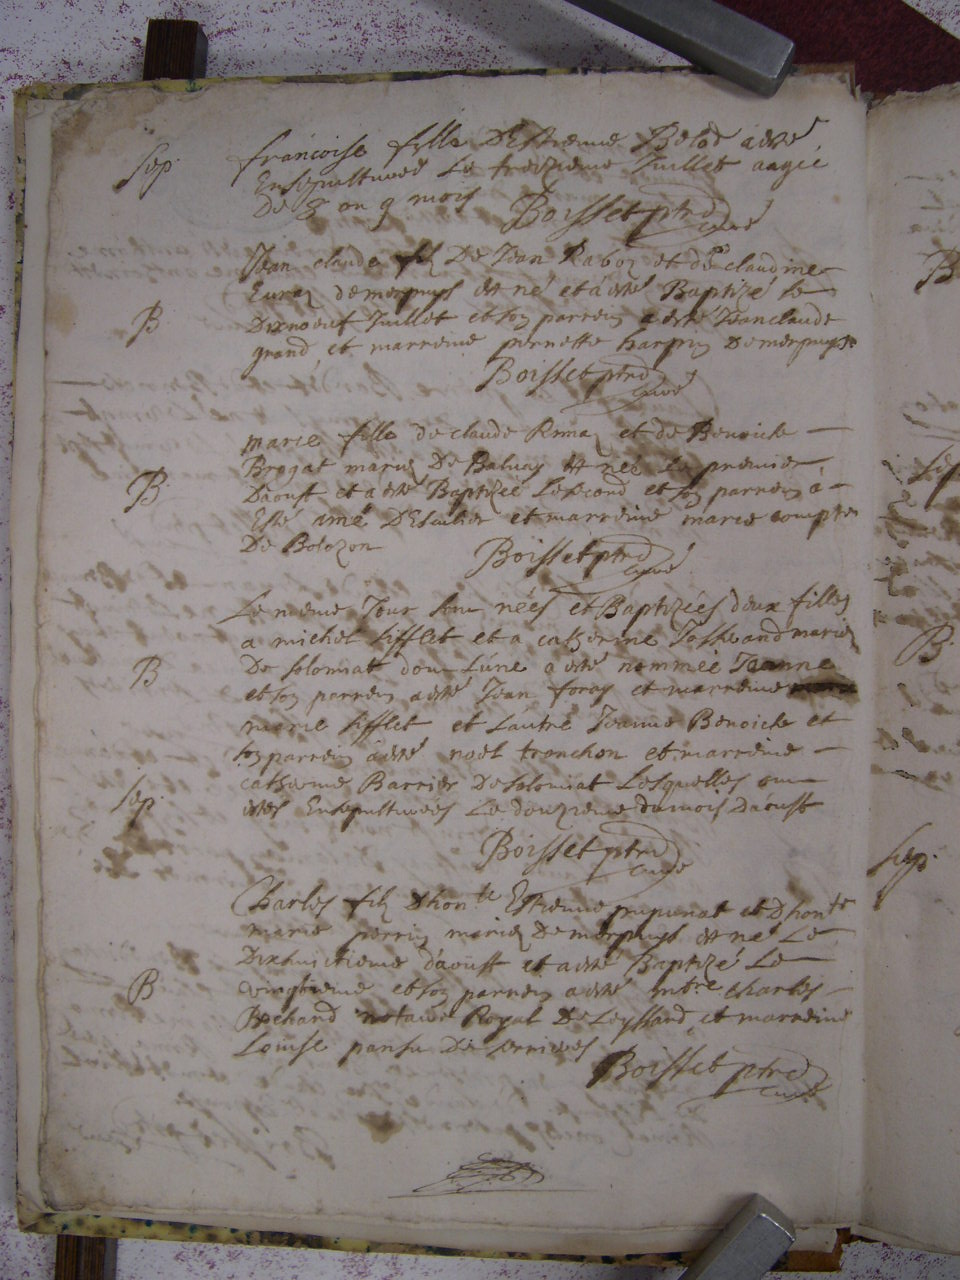 Sep. francoise fille D'Estienne Belod a esté
Ensepulturée Le treizieme Juillet aagée
De 8 ou 9 mois Boisset ptre
curé
Jean claude fils De Jean Ravoz et de claudine
demerpuys est né et a esté Baptizé le
B Dixneuf Juillet et son parrein a esté Jeanclaude
grand et marreine pernette harpin Demerpuys
Boisset ptre
curé
marie fille de claude et de Benoiste
Brogat mariez De Balvay est née le premier
B. Daoust et a esté Baptizée Le second et son parrein a
Esté amé et marreine marie compte
De Bolozon Boisset ptre
curé
Le meme Jour sont nées et Baptizées deux filles
a michel sifflet et a catherine mariez
B De solomiat dont L'une a esté nommée Jeanne
et son parrein a esté Jean foray et marreine
marie sifflet et L'autre Jeanne Benoiste et
son parrein a esté noël tronchon et marreine
catherine Barrier De solomiat Lesquelles ont
Sep. estés Ensepulturées Le douzieme du mois Daoust
Boisset ptre
curé
Charles fils D'honte Estienne pupunat et D'honte
marie perrin mariez Demerpuys est né Le
Dixhuictieme d'aoust et a esté Baptizé Le
B vingtieme et son parrein a esté mtre Charles
Bochand notaire Royal De Leyssard et marreine
Louise pansu De serrieres
Boisset ptre
curé